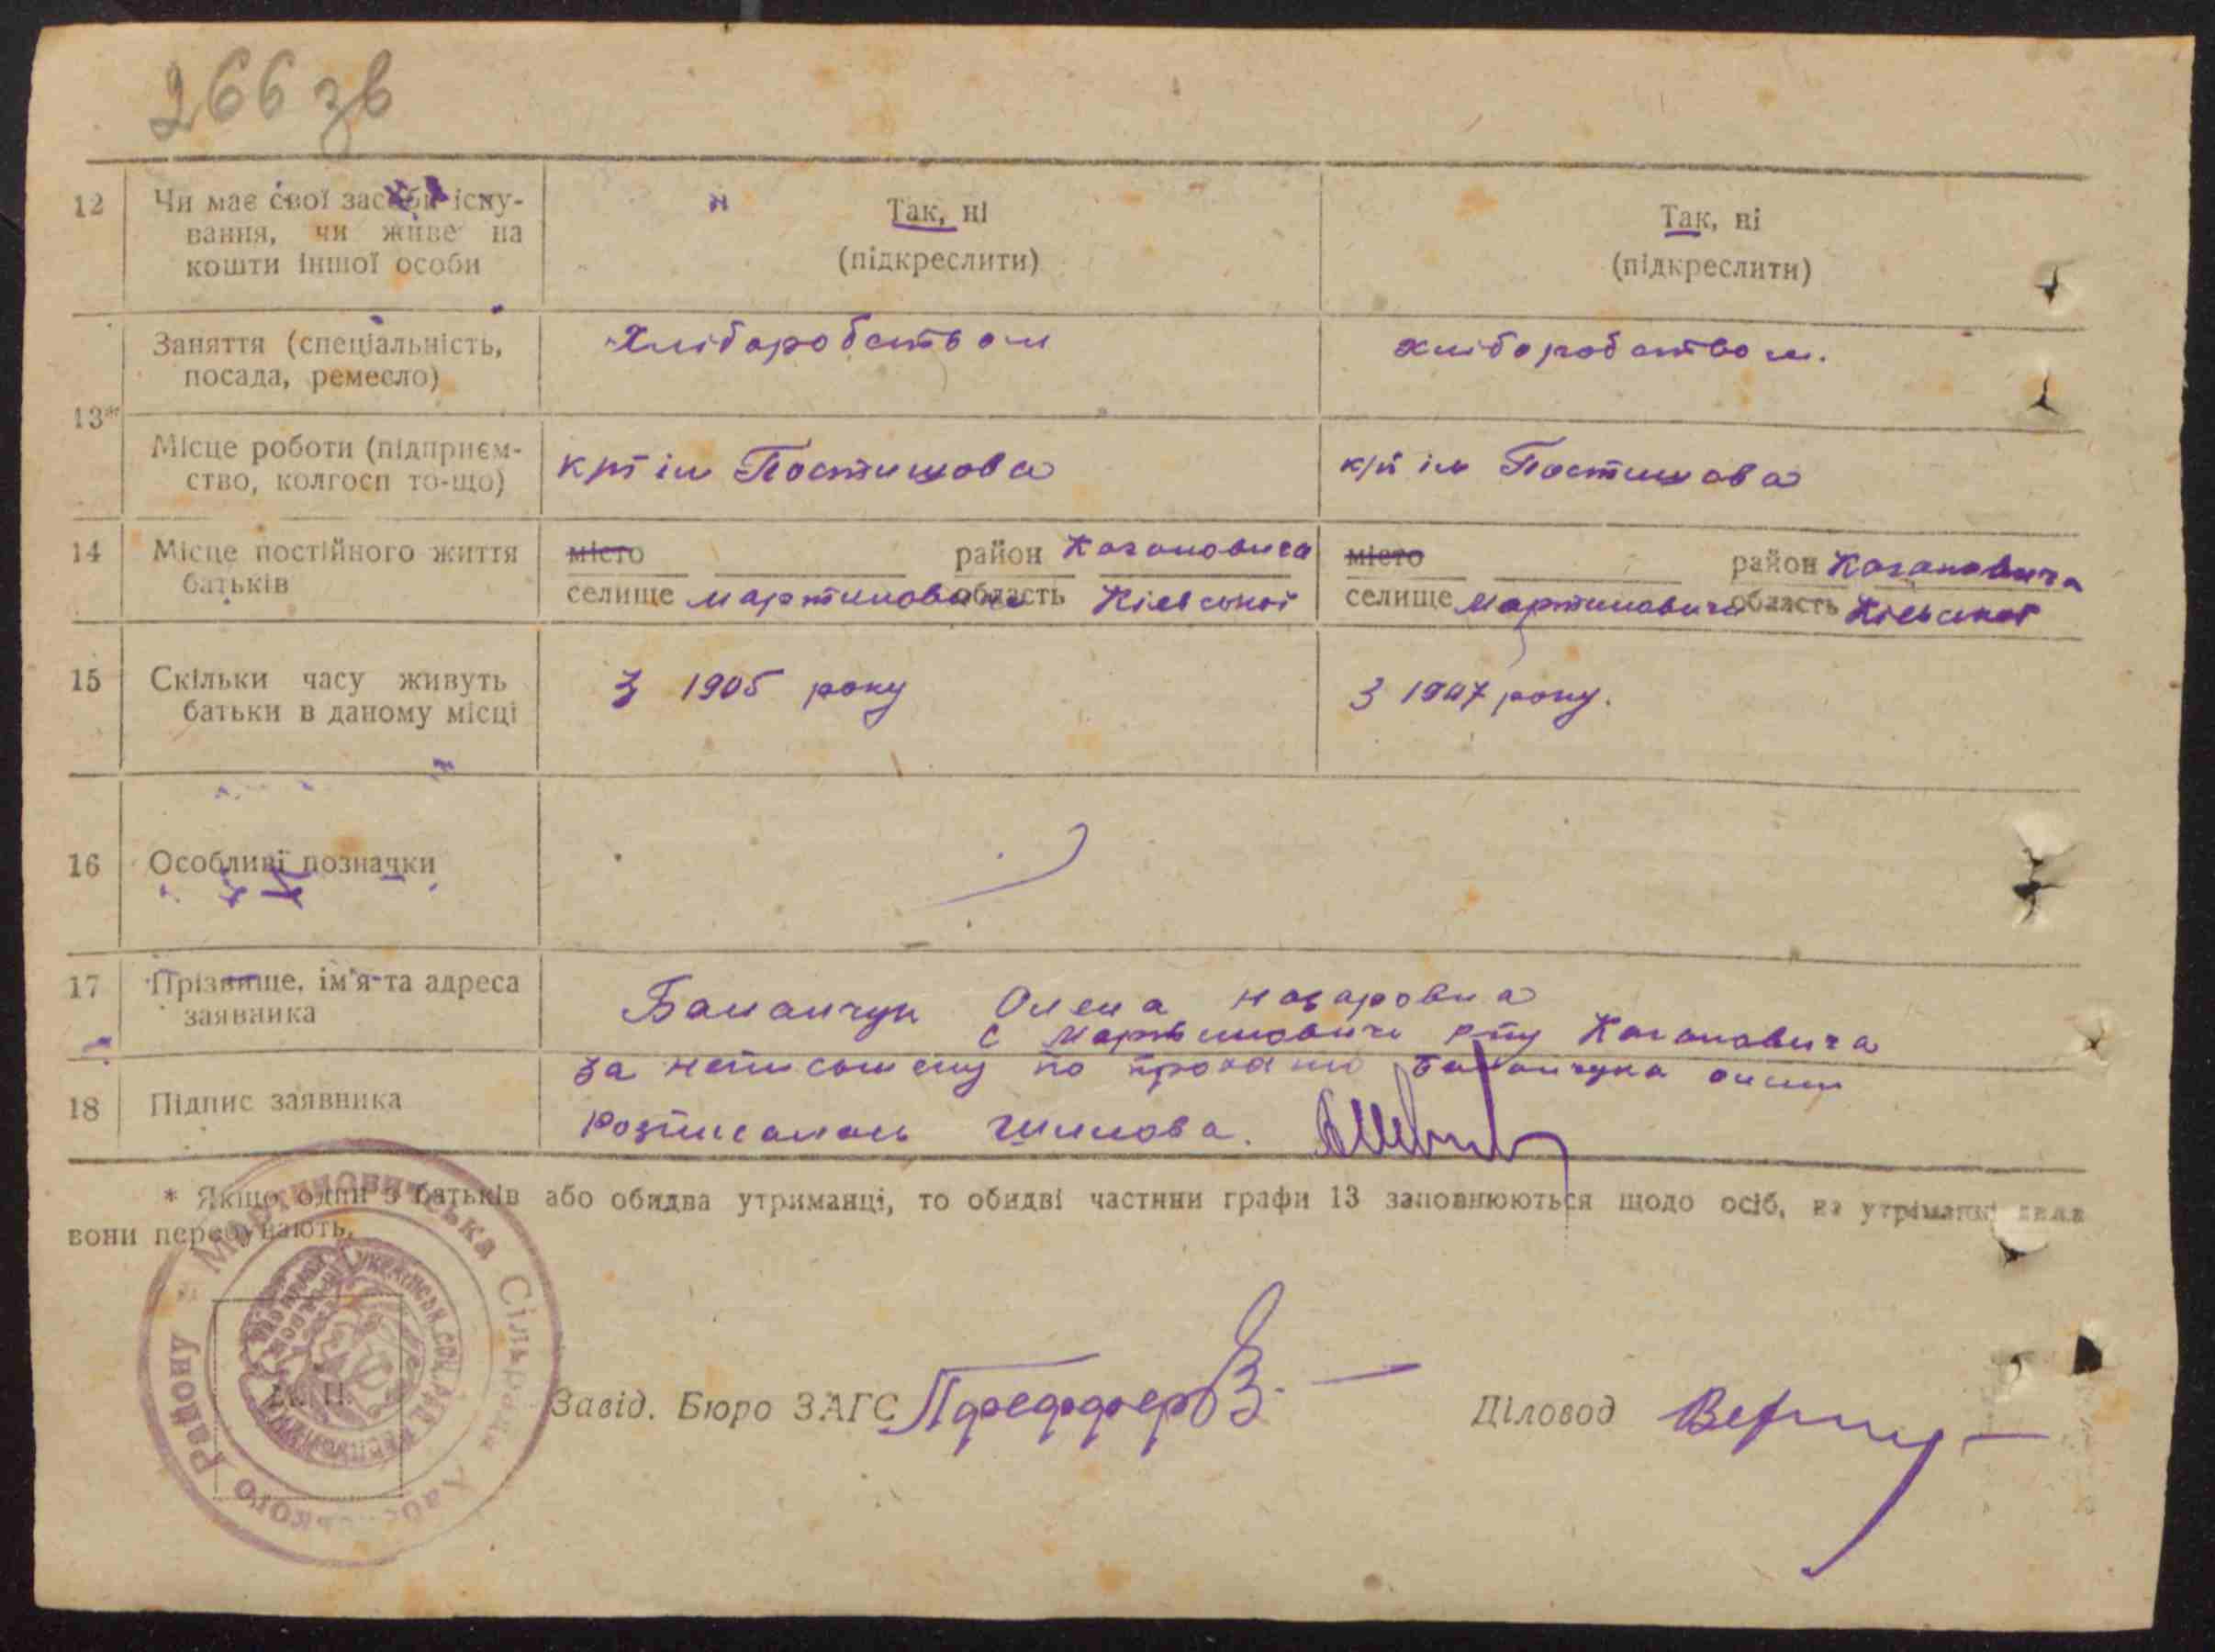 266 зв
12 Чи має свої засоби існу-
вання, чи живе на
кошти іншої особи
Так, ні
(підкреслити)
Так, ні
(підкреслити)
13*
Заняття (спеціальність,
посада, ремесло)
Хліборобством
хліборобством.
Місце роботи (підприєм-
ство, колгосп то-що)
к/г ім Постишова
к/г ім Постишова
14 Місце постійного життя
батьків
місто район Кагановича
селище Мартиновичи область Київської
місто район Кагановича
селище Мартиновичи область Київської
15 Скільки часу живуть
батьки в даному місці
З 1905 року
З 1907 року.
16 Особливі позначки
17 Прізвище, ім'я та адреса
заявника
Олена Назаровна
с Мартиновичи р-ну Кагановича
18 Підпис заявника
за неписьмену по проханню
Розписалась
* Якщо один з батьків або обидва утриманці, то обидві частини графи 13 заповнюються щодо осіб, на утриманні яких
вони перебувають.
Мартиновичська Сільрада
Району
М. П.
Завід. Бюро ЗАГС
Діловод